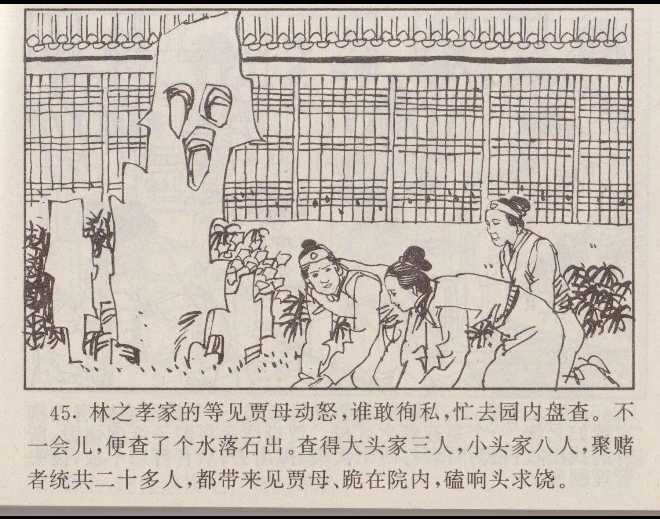 45. 林之孝家的等见贾母动怒，谁敢徇私，忙去园内盘查。不
一会儿，便查了个水落石出。查得大头家三人，小头家八人，聚赌
者统共二十多人，都带来见贾母、跪在院内，磕响头求饶。